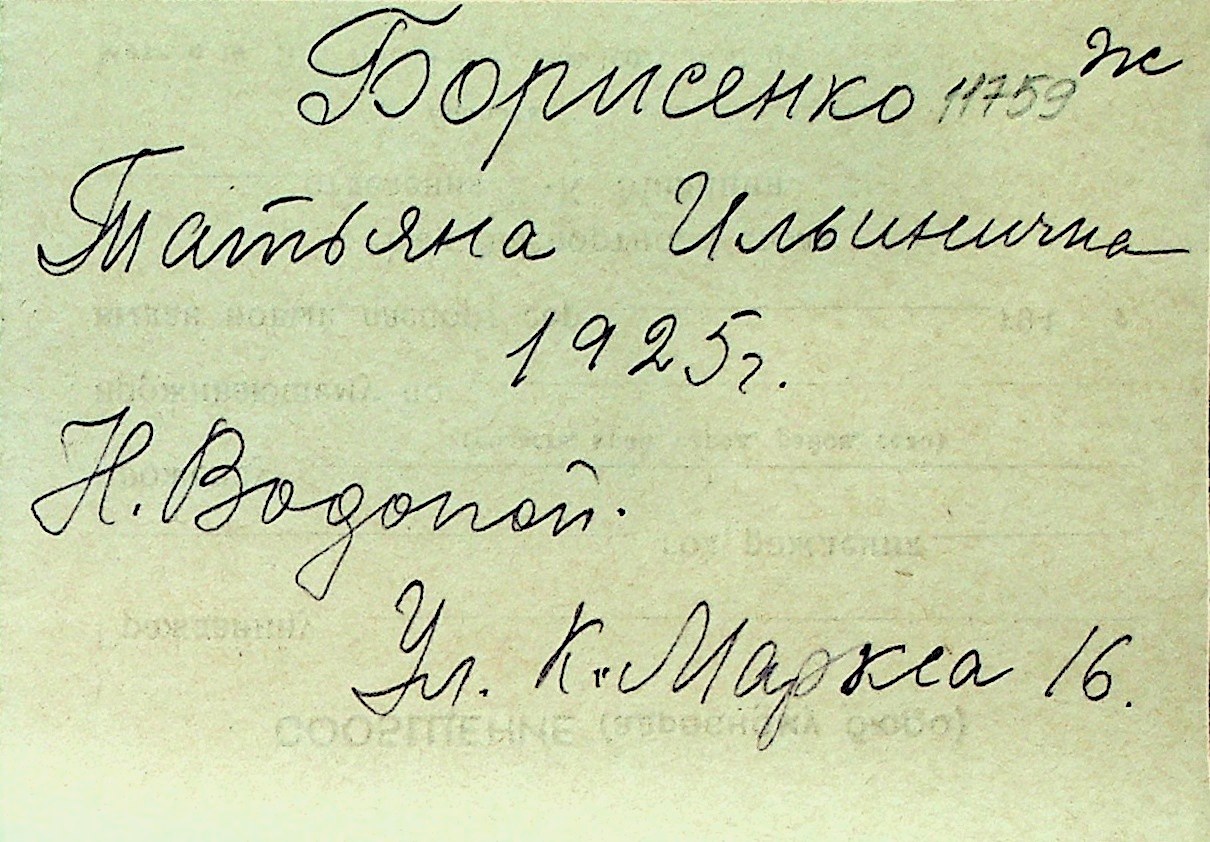 Борисенко 11759 ж
Татьяна Ильинична
1925г.
Н. Водопой.
Ул. К. Маркса 16.
СООБЩЕНИЕ